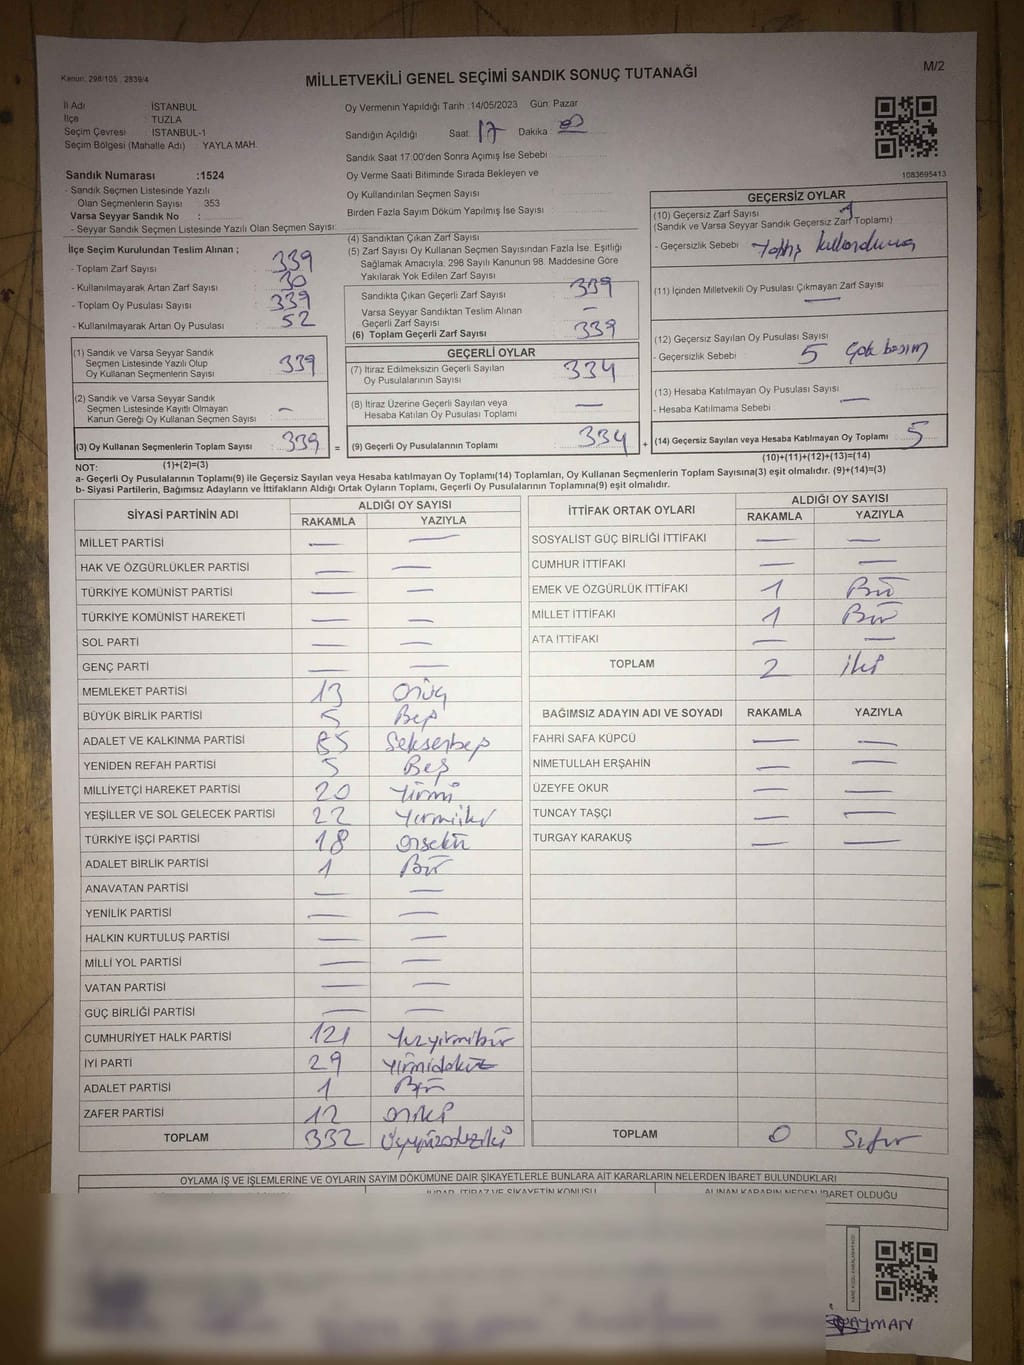 Kanun: 298/105 , 2839/4
MİLLETVEKİLİ GENEL SEÇİMİ SANDIK SONUÇ TUTANAĞI
M/2
İl Adı İSTANBUL
İlçe : TUZLA
Seçim Çevresi : İSTANBUL-1
Seçim Bölgesi (Mahalle Adı) : YAYLA MAH.
Oy Vermenin Yapıldığı Tarih :14/05/2023 Gün: Pazar
Sandığın Açıldığı Saat: 17 Dakika
Sandık Saat 17:00'den Sonra Açımış İse Sebebi
Oy Verme Saati Bitiminde Sırada Bekleyen ve
Oy Kullandırılan Seçmen Sayısı
Birden Fazla Sayım Döküm Yapılmış İse Sayısı
1083695413
Sandık Numarası :1524
- Sandık Seçmen Listesinde Yazılı
Olan Seçmenlerin Sayısı : 353
Varsa Seyyar Sandık No :
- Seyyar Sandık Seçmen Listesinde Yazılı Olan Seçmen Sayısı
İlçe Seçim Kurulundan Teslim Alınan ;
- Toplam Zarf Sayısı : 339
- Kullanılmayarak Artan Zarf Sayısı : 30
- Toplam Oy Pusulası Sayısı : 339
- Kullanılmayarak Artan Oy Pusulası : 52
(1) Sandık ve Varsa Seyyar Sandık
Seçmen Listesinde Yazılı Olup
Oy Kullanan Seçmenlerin Sayısı : 339
(2) Sandık ve Varsa Seyyar Sandık
Seçmen Listesinde Kayıtlı Olmayan
Kanun Gereği Oy Kullanan Seçmen Sayısı : –
(3) Oy Kullanan Seçmenlerin Toplam Sayısı : 339
(1)+(2)=(3)
(4) Sandıktan Çıkan Zarf Sayısı
(5) Zarf Sayısı Oy Kullanan Seçmen Sayısından Fazla İse, Eşitliği
Sağlamak Amacıyla, 298 Sayılı Kanunun 98. Maddesine Göre
Yakılarak Yok Edilen Zarf Sayısı
Sandıkta Çıkan Geçerli Zarf Sayısı : 339
Varsa Seyyar Sandıktan Teslim Alınan
Geçerli Zarf Sayısı : –
(6) Toplam Geçerli Zarf Sayısı : 339
GEÇERLİ OYLAR
(7) İtiraz Edilmeksizin Geçerli Sayılan
Oy Pusulalarının Sayısı : 334
(8) İtiraz Üzerine Geçerli Sayılan veya
Hesaba Katılan Oy Pusulası Toplamı : –
= (9) Geçerli Oy Pusulalarının Toplamı : 334
GEÇERSİZ OYLAR
(10) Geçersiz Zarf Sayısı
(Sandık ve Varsa Seyyar Sandık Geçersiz Zarf Toplamı)
- Geçersizlik Sebebi
(11) İçinden Milletvekili Oy Pusulası Çıkmayan Zarf Sayısı
–
(12) Geçersiz Sayılan Oy Pusulası Sayısı
- Geçersizlik Sebebi 5 Çok basım
(13) Hesaba Katılmayan Oy Pusulası Sayısı
–
- Hesaba Katılmama Sebebi
+ (14) Geçersiz Sayılan veya Hesaba Katılmayan Oy Toplamı : 5
(10)+(11)+(12)+(13)=(14)
NOT:
a- Geçerli Oy Pusulalarının Toplamı(9) ile Geçersiz Sayılan veya Hesaba katılmayan Oy Toplamı(14) Toplamları, Oy Kullanan Seçmenlerin Toplam Sayısına(3) eşit olmalıdır. (9)+(14)=(3)
b- Siyasi Partilerin, Bağımsız Adayların ve İttifakların Aldığı Ortak Oyların Toplamı, Geçerli Oy Pusulalarının Toplamına(9) eşit olmalıdır.
SİYASİ PARTİNİN ADI ALDIĞI OY SAYISI
RAKAMLA YAZIYLA
MİLLET PARTİSİ — —
HAK VE ÖZGÜRLÜKLER PARTİSİ — —
TÜRKİYE KOMÜNİST PARTİSİ — —
TÜRKİYE KOMÜNİST HAREKETİ — —
SOL PARTİ — —
GENÇ PARTİ — —
MEMLEKET PARTİSİ 13 onüç
BÜYÜK BİRLİK PARTİSİ 5 Beş
ADALET VE KALKINMA PARTİSİ 85 Seksenbeş
YENİDEN REFAH PARTİSİ 5 Beş
MİLLİYETÇİ HAREKET PARTİSİ 20 Yirmi
YEŞİLLER VE SOL GELECEK PARTİSİ 22 Yirmiiki
TÜRKİYE İŞÇİ PARTİSİ 18 onsekiz
ADALET BİRLİK PARTİSİ 1 Bir
ANAVATAN PARTİSİ — —
YENİLİK PARTİSİ — —
HALKIN KURTULUŞ PARTİSİ — —
MİLLİ YOL PARTİSİ — —
VATAN PARTİSİ — —
GÜÇ BİRLİĞİ PARTİSİ — —
CUMHURİYET HALK PARTİSİ 121 Yüzyirmibir
İYİ PARTİ 29 Yirmidokuz
ADALET PARTİSİ 1 Bir
ZAFER PARTİSİ 12 oniki
TOPLAM 332 Üçyüzotuziki
İTTİFAK ORTAK OYLARI ALDIĞI OY SAYISI
RAKAMLA YAZIYLA
SOSYALİST GÜÇ BİRLİĞİ İTTİFAKI — —
CUMHUR İTTİFAKI — —
EMEK VE ÖZGÜRLÜK İTTİFAKI 1 Bir
MİLLET İTTİFAKI 1 Bir
ATA İTTİFAKI — —
TOPLAM 2 iki
BAĞIMSIZ ADAYIN ADI VE SOYADI RAKAMLA YAZIYLA
FAHRİ SAFA KÜPCÜ — —
NİMETULLAH ERŞAHİN — —
ÜZEYFE OKUR — —
TUNCAY TAŞÇI — —
TURGAY KARAKUŞ — —
TOPLAM 0 Sıfır
OYLAMA İŞ VE İŞLEMLERİNE VE OYLARIN SAYIM DÖKÜMÜNE DAİR ŞİKAYETLERLE BUNLARA AİT KARARLARIN NELERDEN İBARET BULUNDUKLARI
İTİRAZ VE ŞİKAYETİN KONUSU ALINAN KARARIN NEDEN İBARET OLDUĞU